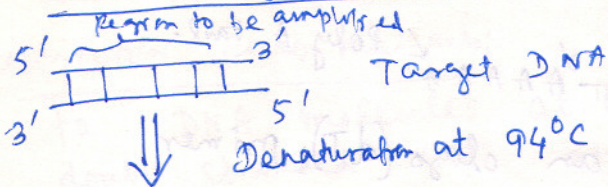 Region to be amplified
5' 3'
Target DNA
3' 5'
Denaturation at 94°C